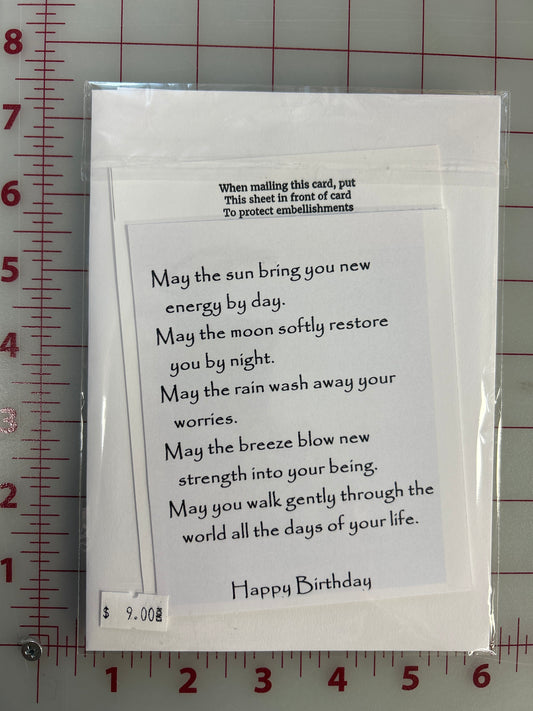 8
7
6
5
4
3
2
1
When mailing this card, put
This sheet in front of card
To protect embellishments
May the sun bring you new
energy by day.
May the moon softly restore
you by night.
May the rain wash away your
worries.
May the breeze blow new
strength into your being.
May you walk gently through the
world all the days of your life.
Happy Birthday
$ 9.00
1 2 3 4 5 6